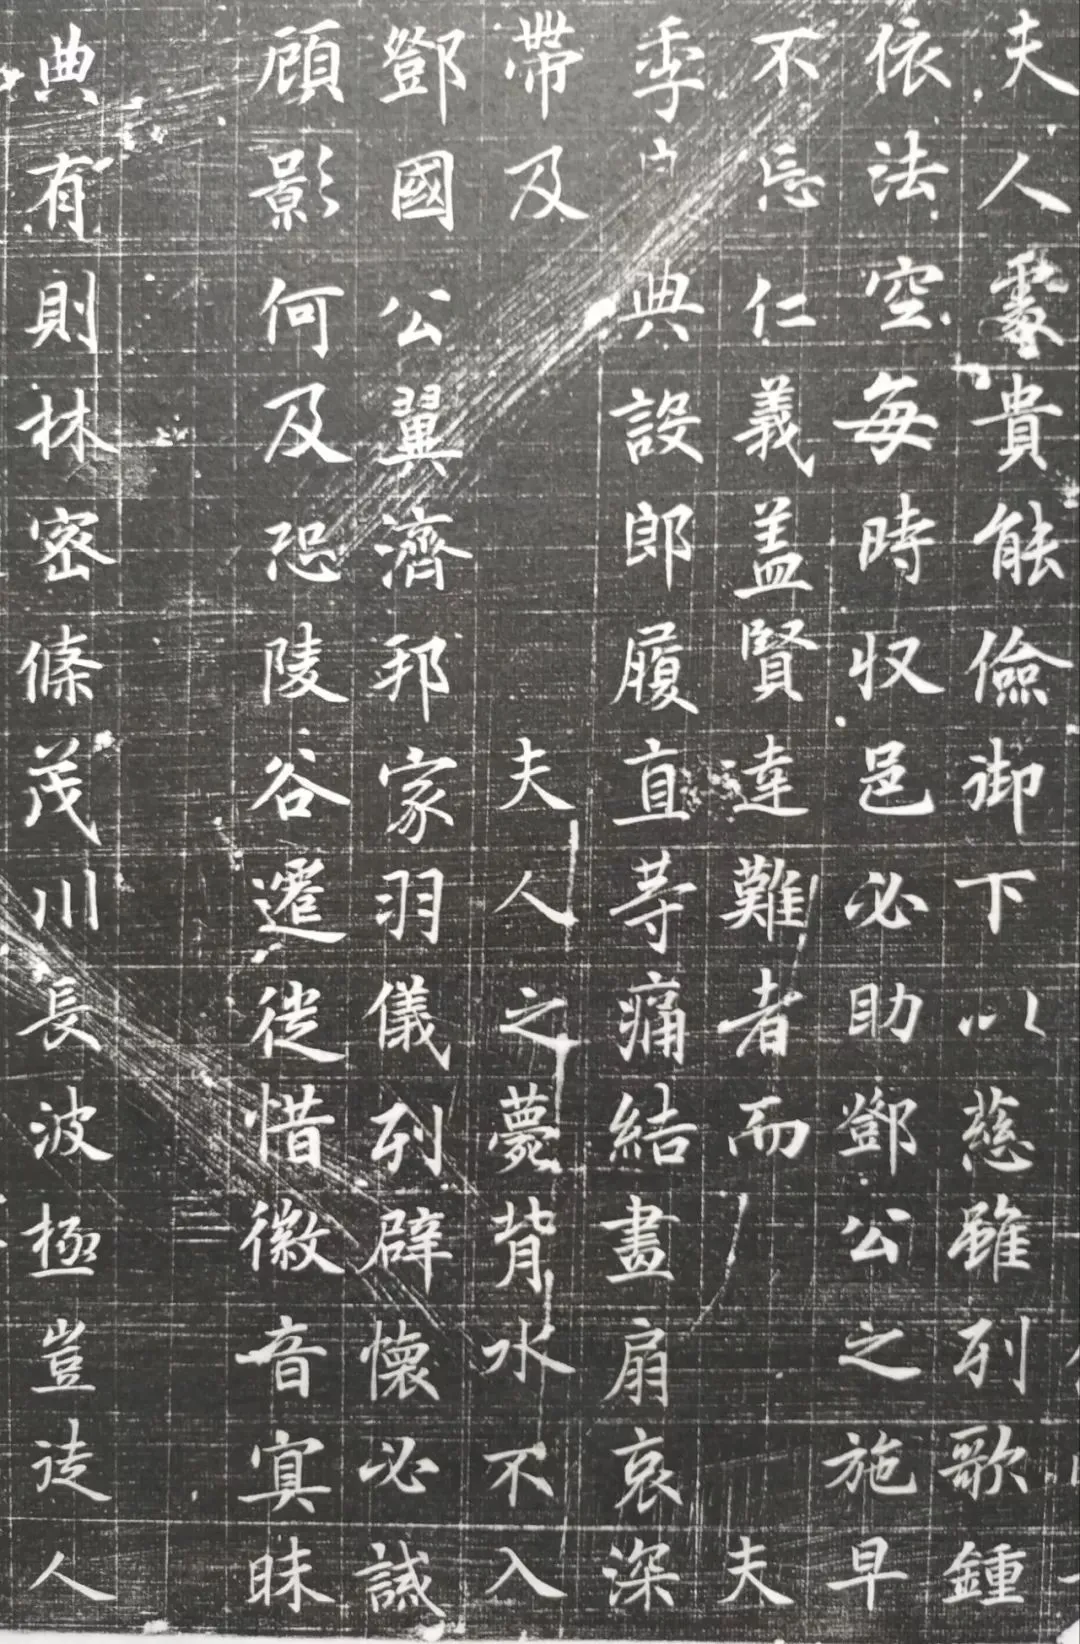 夫人處貴能儉御下以慈雖列歌鍾
依法空每時收邑必助鄧公之施早
不忘仁義盖賢達難者而夫
季 典設郎履直等痛結畫扇哀深
帶及夫人之薨背水不入
鄧國公翼濟邦家羽儀列辟懷必誠
顧影何及恐陵谷遷徙惜徽音寘昧
典有則林密條茂川長波極豈徒人